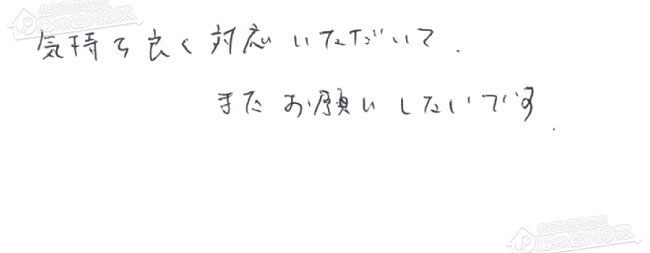 気持ち良く対応いただいて.
またお願いしたいです.